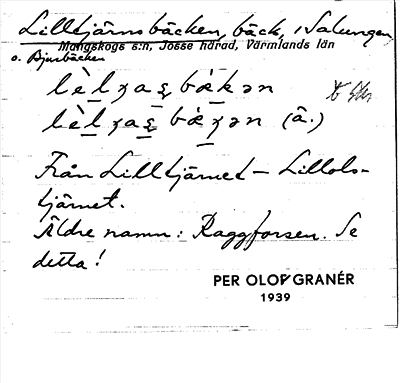 Lilltjärnsbäcken, bäck, i Salungen,
Mangskogs s:n, Jösse härad, Värmlands län
o. Bjursbäcken
(â.)
Från Lilltjärnet – Lillols-
tjärnet.
Äldre namn: Raggforsen. Se
detta!
PER OLOF GRANÉR
1939